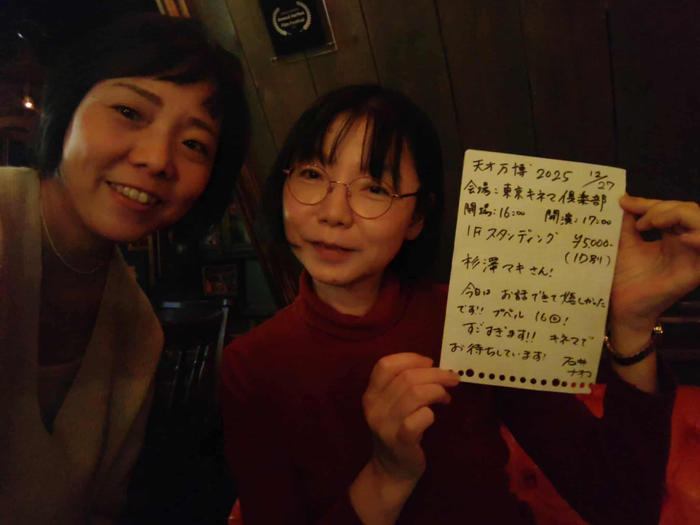 天才万博 2025 12/27
会場：東京キネマ倶楽部
開場：16:00 開演：17:00
1Fスタンディング ¥5000-
(1D別)
杉澤マキさん！
今日は お話できて嬉しかった
です!! プペル 16回！
すごすぎます!! キネマで
お待ちしています！
石井
ナオコ